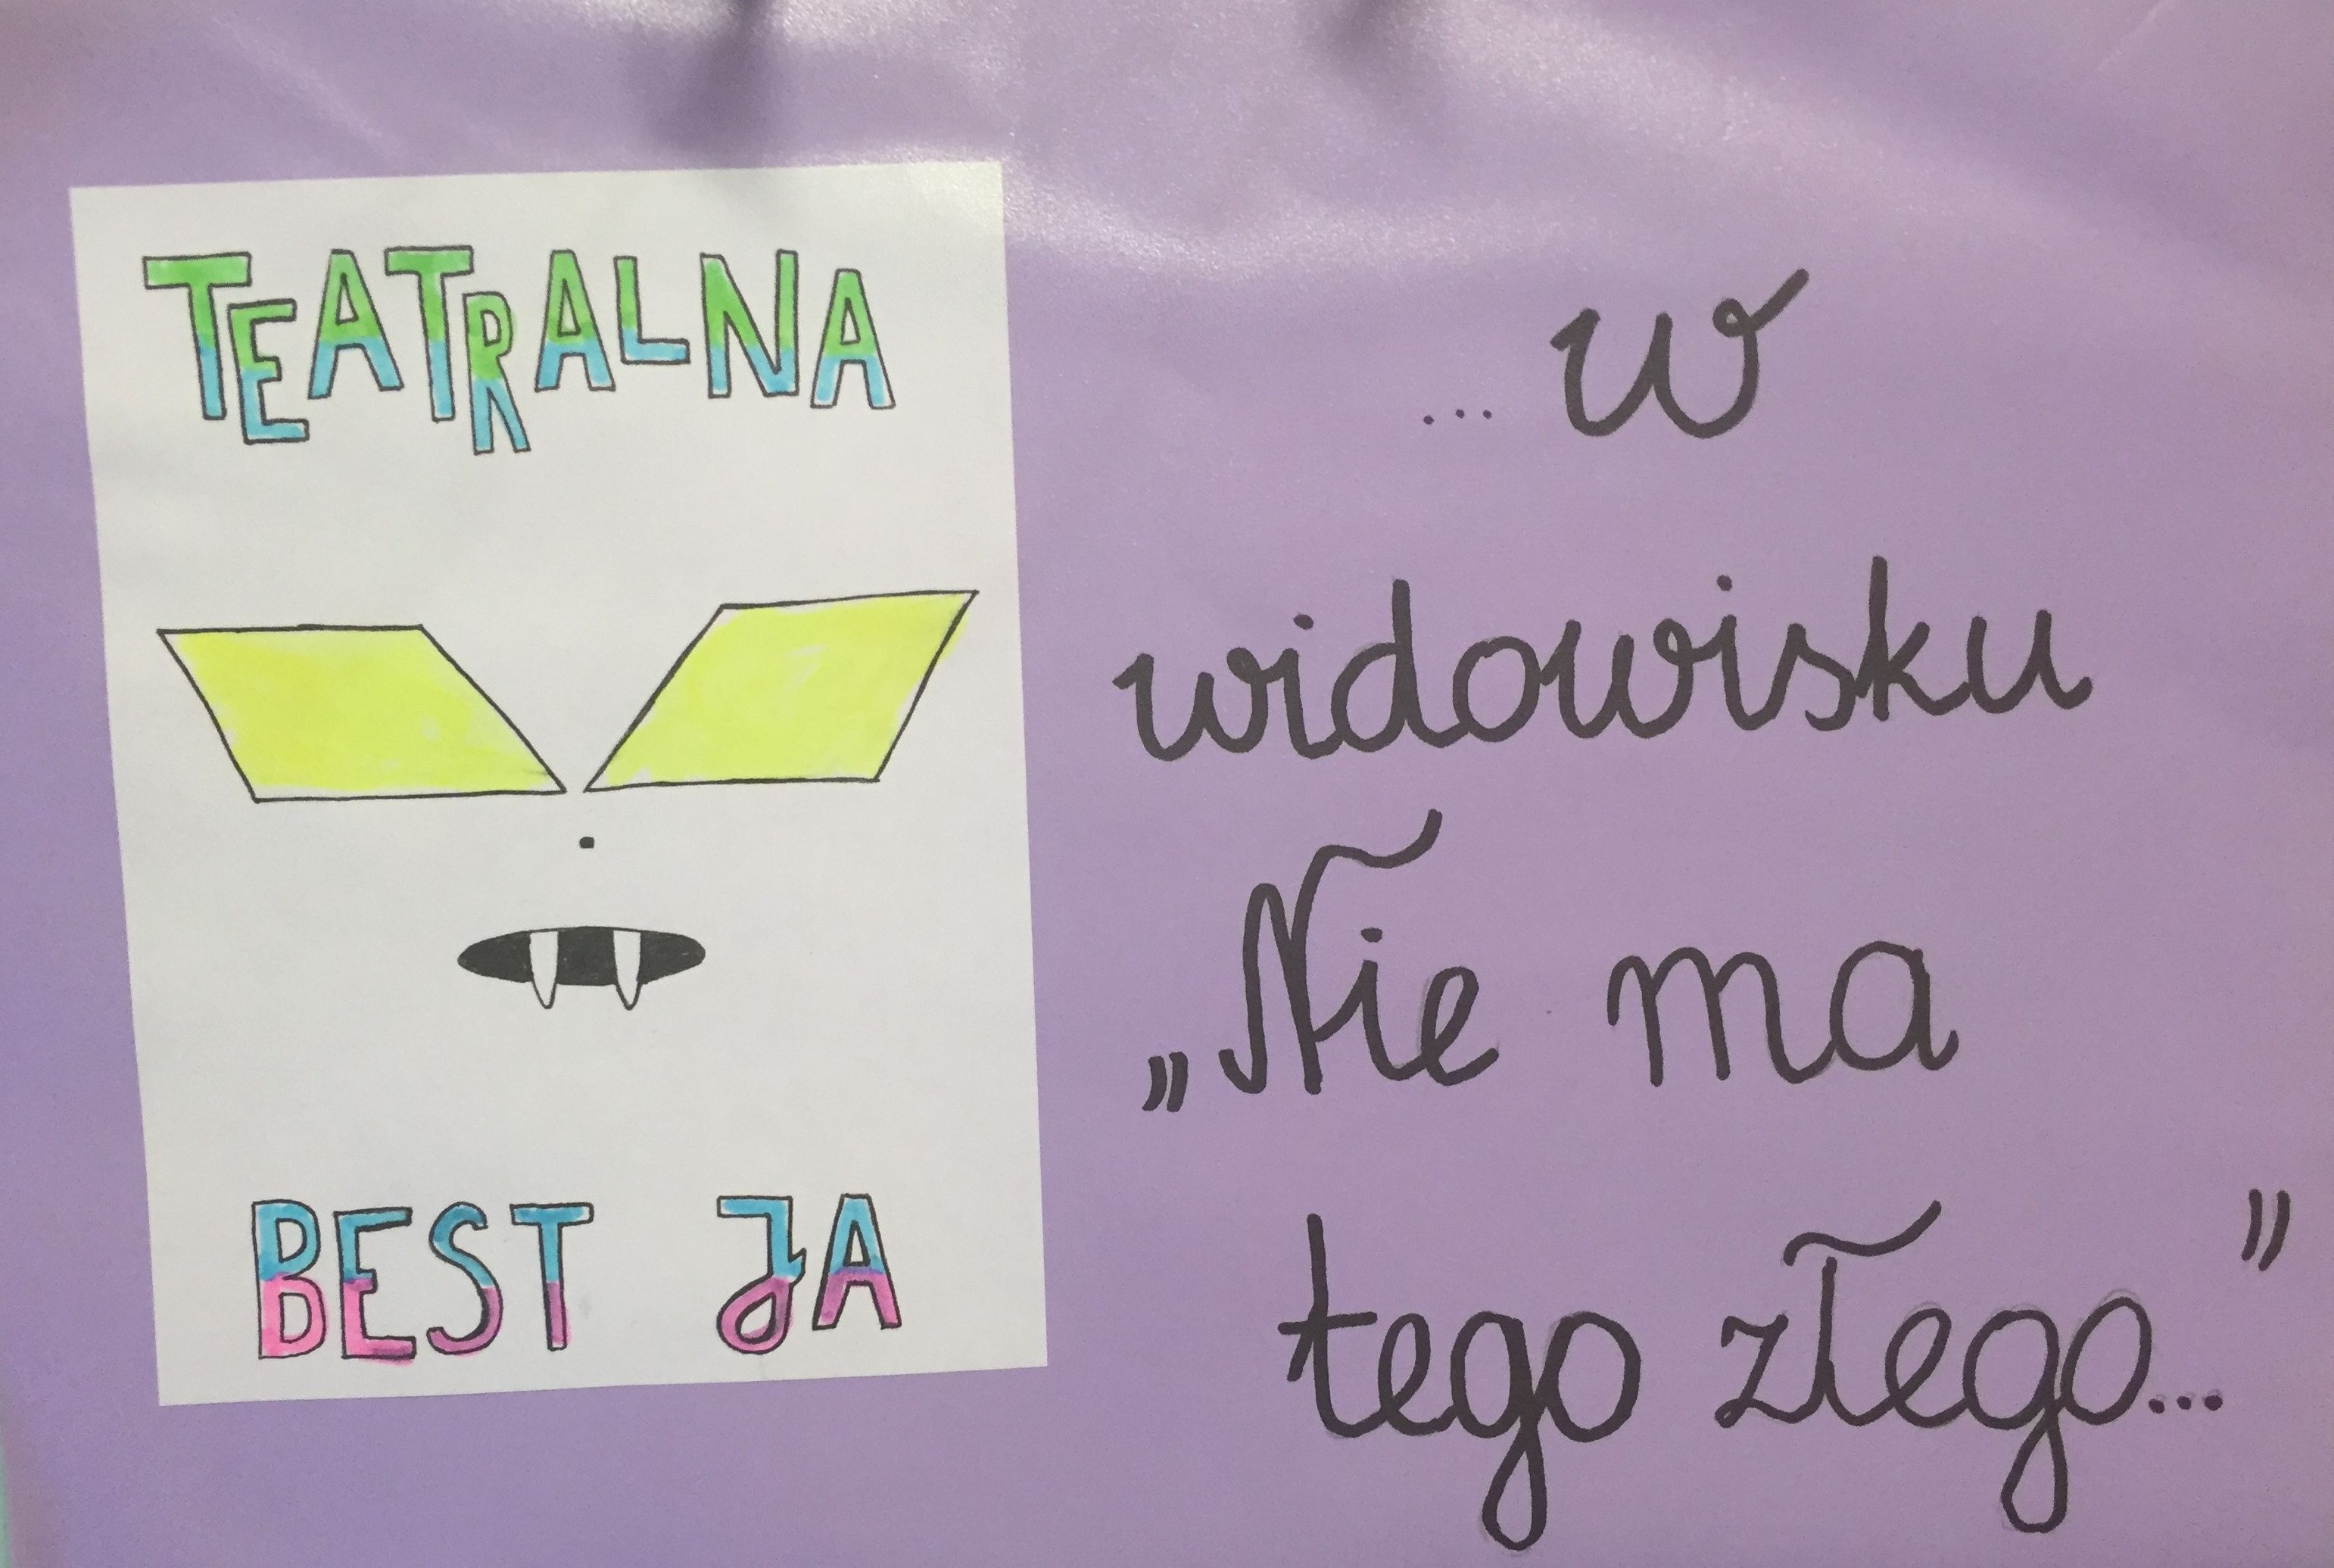 TEATRALNA
BEST JA
... w
widowisku
„Nie ma
tego złego...”